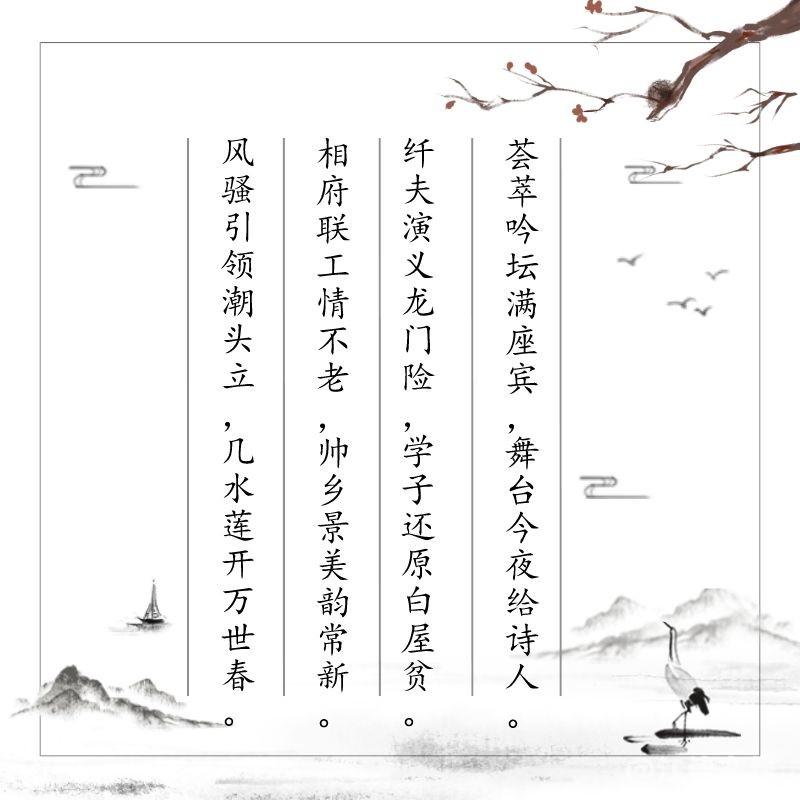 荟萃吟坛满座宾，舞台今夜给诗人。
纤夫演义龙门险，学子还原白屋贫。
相府联工情不老，帅乡景美韵常新。
风骚引领潮头立，几水莲开万世春。